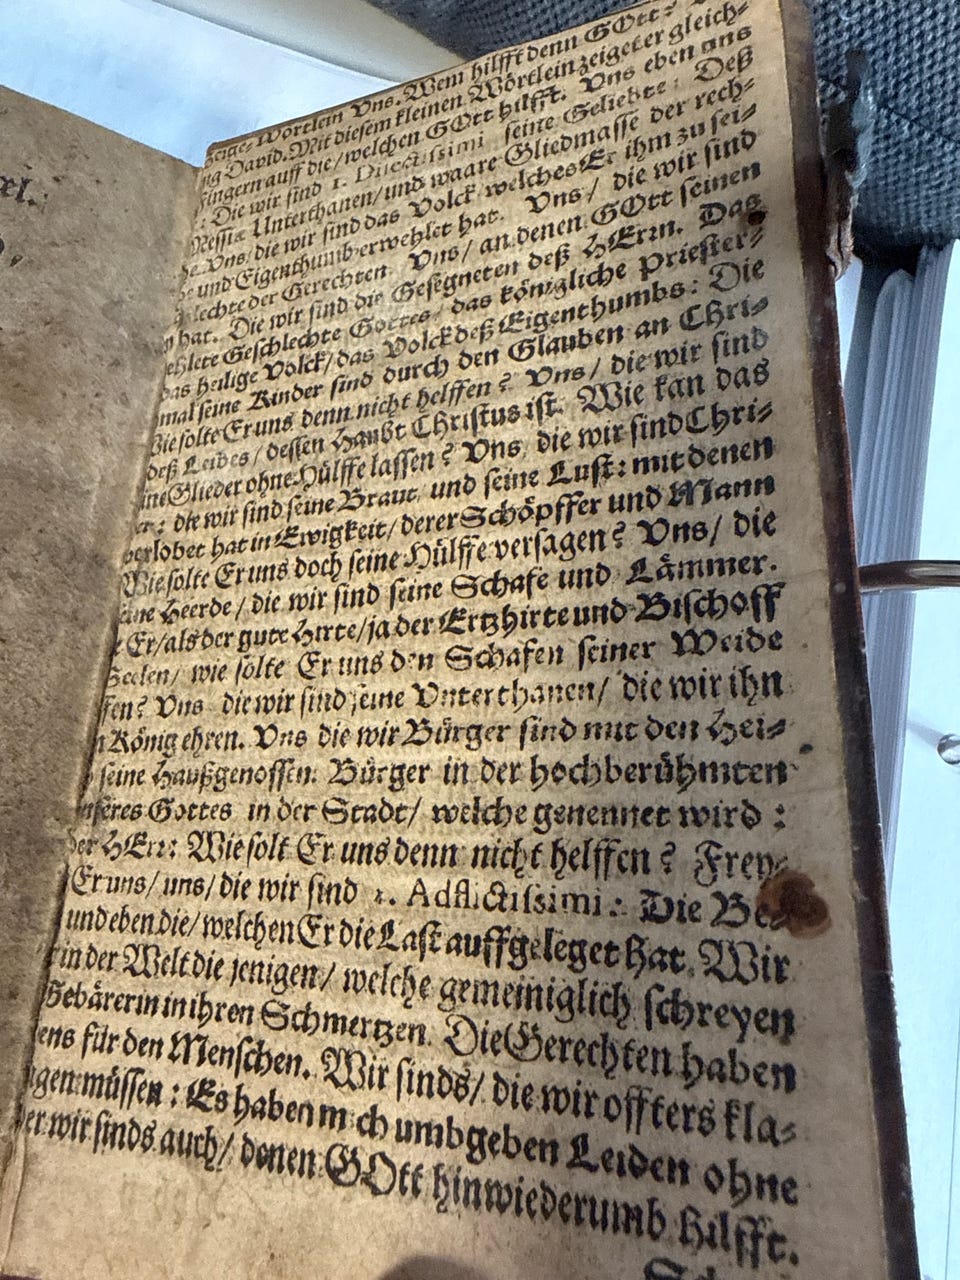 xl.
zeige-Wörtlein Vns. Wem hilfft denn GOtt?
ig David. Mit diesem kleinen Wörtlein zeiget er gleich-
Fingern auff die/ welchen GOtt hilfft. Vns eben uns
: Die wir sind 1. Dilectissimi seine Geliebte: Deß
Messiæ Unterthanen/ und waare Gliedmasse der rech-
he. Vns/ die wir sind das Volck/ welches Er ihm zu sei-
und Eigenthumb erwehlet hat. Vns/ die wir sind
lechte der Gerechten. Vns/ an denen GOtt seinen
n hat. Die wir sind die Gesegneten deß HErrn. Das
ehlete Geschlechte Gottes/ das königliche Priester-
das heilige Volck/ das Volck deß Eigenthumbs: Die
mal seine Kinder sind durch den Glauben an Chri-
Wie solte Er uns denn nicht helffen? Vns/ die wir sind
deß Leibes/ dessen Haubt Christus ist. Wie kan das
ine Glieder ohne Hülffe lassen? Vns, die wir sind Chri-
er: die wir sind seine Braut/ und seine Lust: mit denen
verlobet hat in Ewigkeit/ derer Schöpffer und Mann
Wie solte Er uns doch seine Hülffe versagen? Vns/ die
eine Heerde/ die wir sind seine Schafe und Lämmer.
Er/ als der gute Hirte/ ja der Ertzhirte und Bischoff
Seelen/ wie solte Er uns den Schafen seiner Weide
fen? Vns die wir sind seine Vnterthanen/ die wir ihn
n König ehren. Vns die wir Bürger sind mit den Hei-
seine Haußgenossen: Bürger in der hochberühmten
nseres Gottes in der Stadt/ welche genennet wird:
der HErr: Wie solt Er uns denn nicht helffen? Frey-
Er uns/ uns/ die wir sind 2. Adflictissimi: Die Be-
und eben die/ welchen Er die Last auffgeleget hat. Wir
in der Welt die jenigen/ welche gemeiniglich schreyen
Gebärerin in ihren Schmertzen. Die Gerechten haben
ens für den Menschen. Wir sinds/ die wir offters kla-
gen müssen: Es haben mich umbgeben Leiden ohne
er wir sinds auch/ denen GOtt hinwiederumb hilfft.